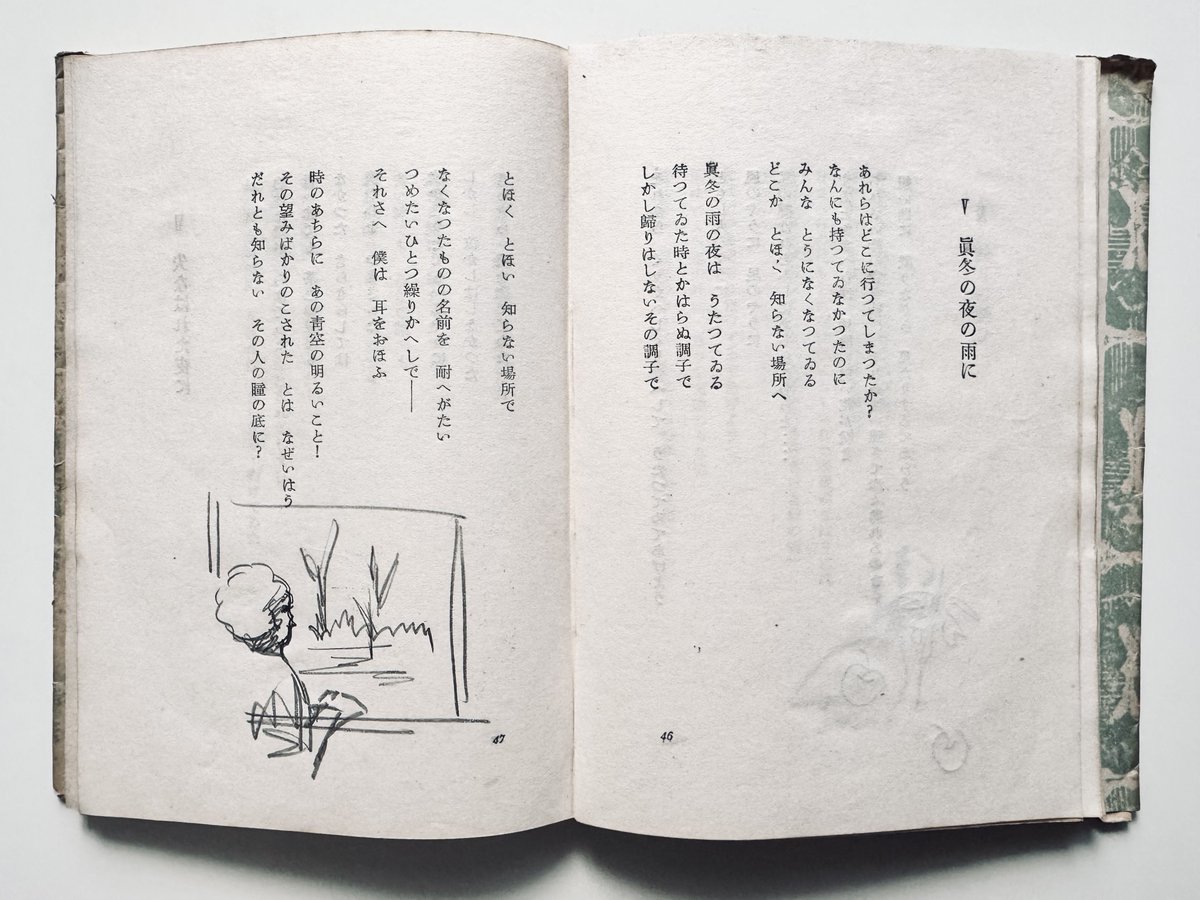 Ⅴ 眞冬の夜の雨に
あれらはどこに行つてしまつたか?
なんにも持つてゐなかつたのに
みんな とうになくなつてゐる
どこか とほく 知らない場所へ
眞冬の雨の夜は うたつてゐる
待つてゐた時とかはらぬ調子で
しかし歸りはしないその調子で
46
とほく とほい 知らない場所で
なくなつたものの名前を 耐へがたい
つめたいひとつ繰りかへしで――
それさへ 僕は 耳をおほふ
時のあちらに あの靑空の明るいこと!
その望みばかりのこされた とは なぜいはう
だれとも知らない その人の瞳の底に?
47